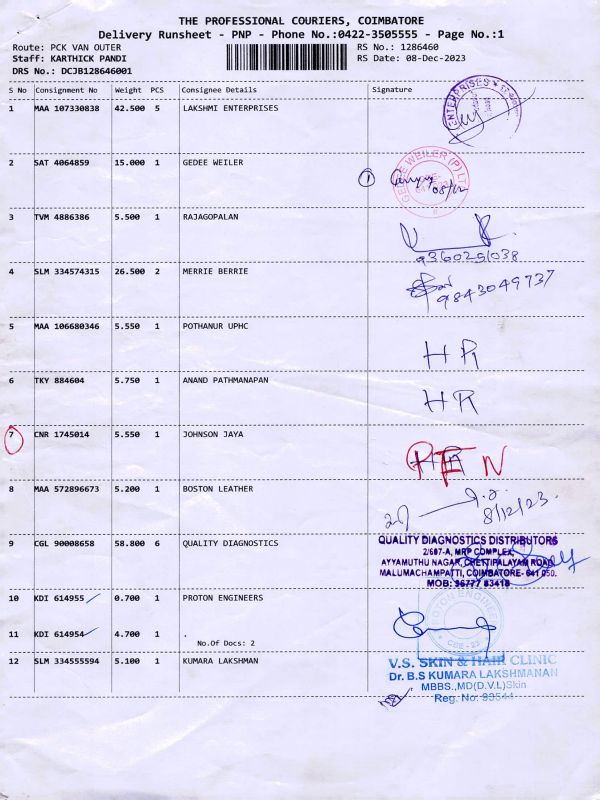 THE PROFESSIONAL COURIERS, COIMBATORE
Delivery Runsheet - PNP - Phone No.:0422-3505555 - Page No.:1
Route: PCK VAN OUTER RS No.: 1286460
Staff: KARTHICK PANDI RS Date: 08-Dec-2023
DRS No.: DCJB128646001
S No Consignment No Weight PCS Consignee Details Signature
1 MAA 107330838 42.500 5 LAKSHMI ENTERPRISES
ENTERPRISES
2 SAT 4064859 15.000 1 GEDEE WEILER
1
GEDEE WEILER (P) LTD
08/12
3 TVM 4886386 5.500 1 RAJAGOPALAN
9360251038
4 SLM 334574315 26.500 2 MERRIE BERRIE
9843049737
5 MAA 106680346 5.550 1 POTHANUR UPHC
HR
6 TKY 884604 5.750 1 ANAND PATHMANAPAN
HR
7 CNR 1745014 5.550 1 JOHNSON JAYA
PEN
8 MAA 572896673 5.200 1 BOSTON LEATHER
8/12/23.
9 CGL 90008658 58.800 6 QUALITY DIAGNOSTICS
QUALITY DIAGNOSTICS DISTRIBUTORS
2/687-A, MRP COMPLEX,
AYYAMUTHU NAGAR, CHETTIPALAYAM ROAD,
MALUMACHAMPATTI, COIMBATORE- 641 050.
MOB: 96777 83418
10 KDI 614955 0.700 1 PROTON ENGINEERS
PROTON ENGINEERS
11 KDI 614954 4.700 1 .
No.Of Docs: 2
12 SLM 334555594 5.100 1 KUMARA LAKSHMAN
V.S. SKIN & HAIR CLINIC
Dr. B.S KUMARA LAKSHMANAN
MBBS.,MD(D.V.L)Skin
Reg. No: 93544